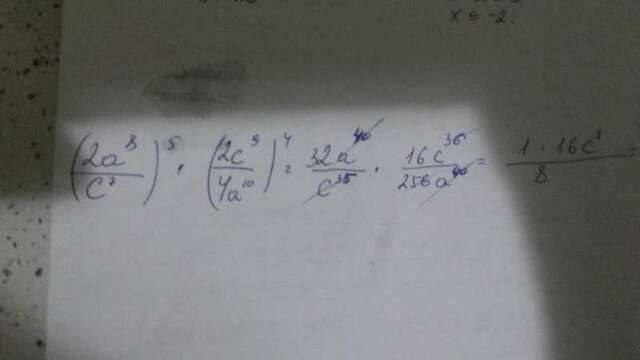 x = -2.
(2a^8/c^7)^5 · (2c^9/4a^10)^4 = 32a^40/c^35 · 16c^36/256a^40 = 1 · 16c^1/8 =